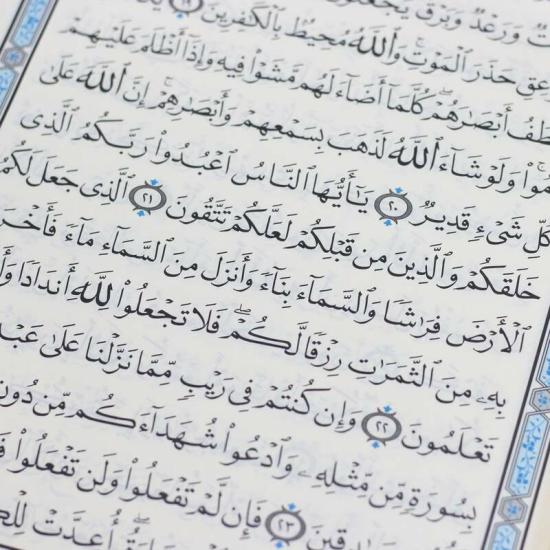 وَرَعْدٌ وَبَرْقٌ يَجْعَلُونَ
حَذَرَ ٱلْمَوْتِ وَٱللَّهُ مُحِيطٌ بِٱلْكَٰفِرِينَ ١٩
أَبْصَٰرَهُمْ كُلَّمَآ أَضَآءَ لَهُم مَّشَوْا۟ فِيهِ وَإِذَآ أَظْلَمَ عَلَيْهِمْ
وَلَوْ شَآءَ ٱللَّهُ لَذَهَبَ بِسَمْعِهِمْ وَأَبْصَٰرِهِمْ إِنَّ ٱللَّهَ عَلَىٰ
كُلِّ شَىْءٍ قَدِيرٌ ٢٠ يَٰٓأَيُّهَا ٱلنَّاسُ ٱعْبُدُوا۟ رَبَّكُمُ ٱلَّذِى
خَلَقَكُمْ وَٱلَّذِينَ مِن قَبْلِكُمْ لَعَلَّكُمْ تَتَّقُونَ ٢١ ٱلَّذِى جَعَلَ لَكُمُ
ٱلْأَرْضَ فِرَٰشًا وَٱلسَّمَآءَ بِنَآءً وَأَنزَلَ مِنَ ٱلسَّمَآءِ مَآءً فَأَخْرَ
بِهِۦ مِنَ ٱلثَّمَرَٰتِ رِزْقًا لَّكُمْ ۖ فَلَا تَجْعَلُوا۟ لِلَّهِ أَندَادًا
تَعْلَمُونَ ٢٢ وَإِن كُنتُمْ فِى رَيْبٍ مِّمَّا نَزَّلْنَا عَلَىٰ عَبْدِ
بِسُورَةٍ مِّن مِّثْلِهِۦ وَٱدْعُوا۟ شُهَدَآءَكُم مِّن دُونِ
دِقِينَ ٢٣ فَإِن لَّمْ تَفْعَلُوا۟ وَلَن تَفْعَلُوا۟
أُعِدَّتْ